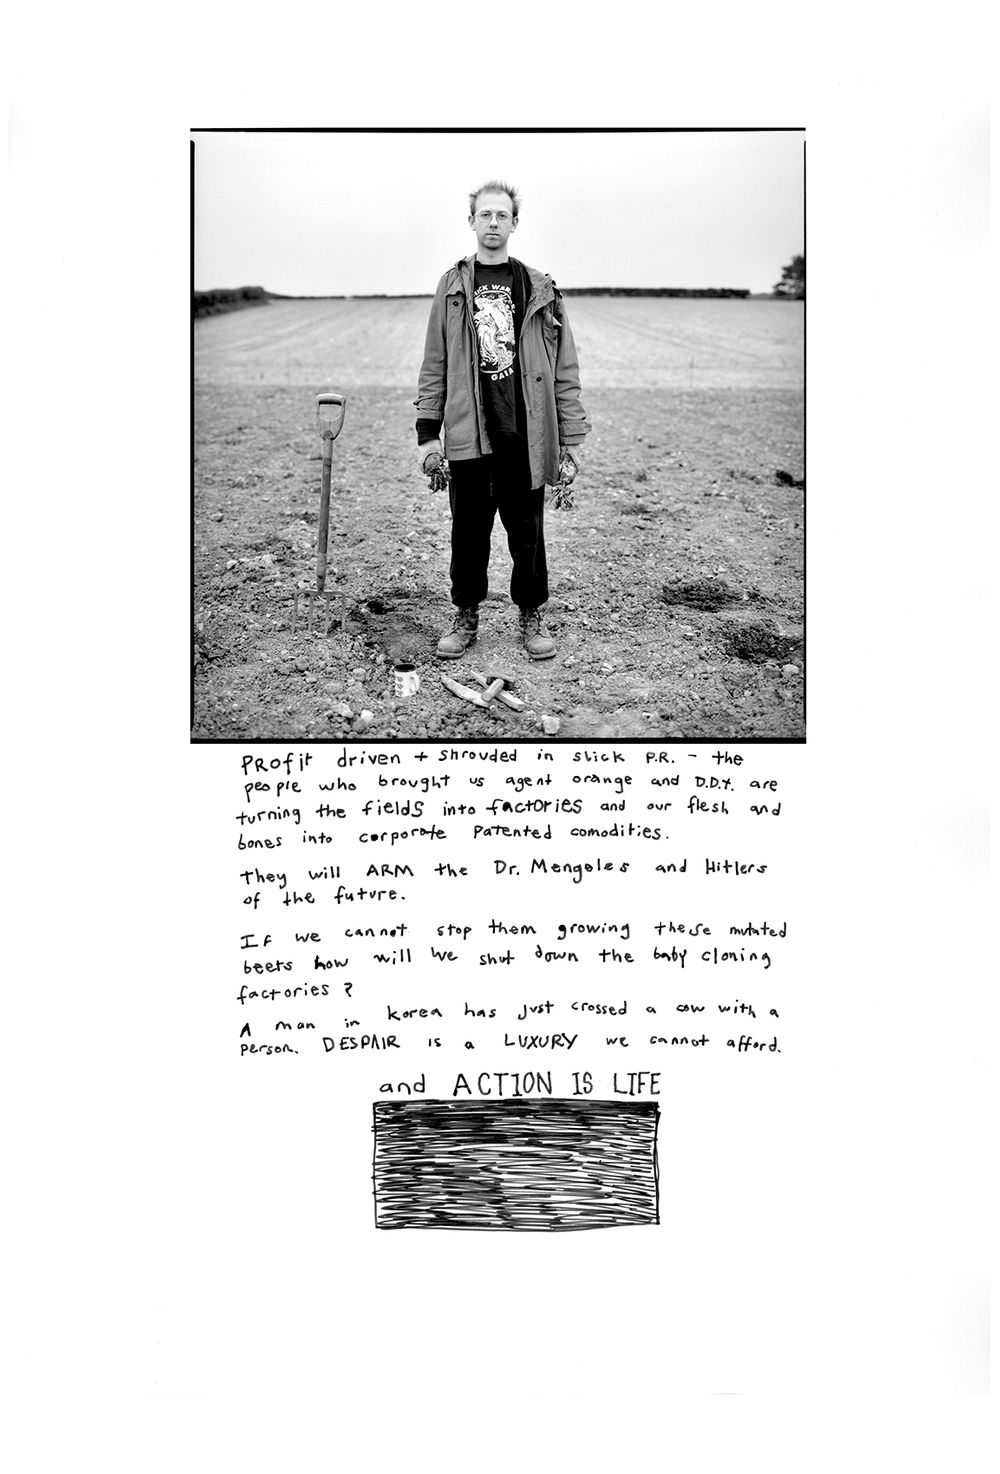 ICK WAR
GAIA
PROfit driven + shrouded in slick P.R. - the
people who brought us agent orange and D.D.t. are
turning the fields into factories and our flesh and
bones into corporate Patented comodities.
They will ARM the Dr. Mengeles and Hitlers
of the future.
If we cannot stop them growing these mutated
beets how will we shut down the baby cloning
factories?
A man in korea has just crossed a cow with a
person. DESPAIR is a LUXURY we cannot afford.
and ACTION IS LIFE